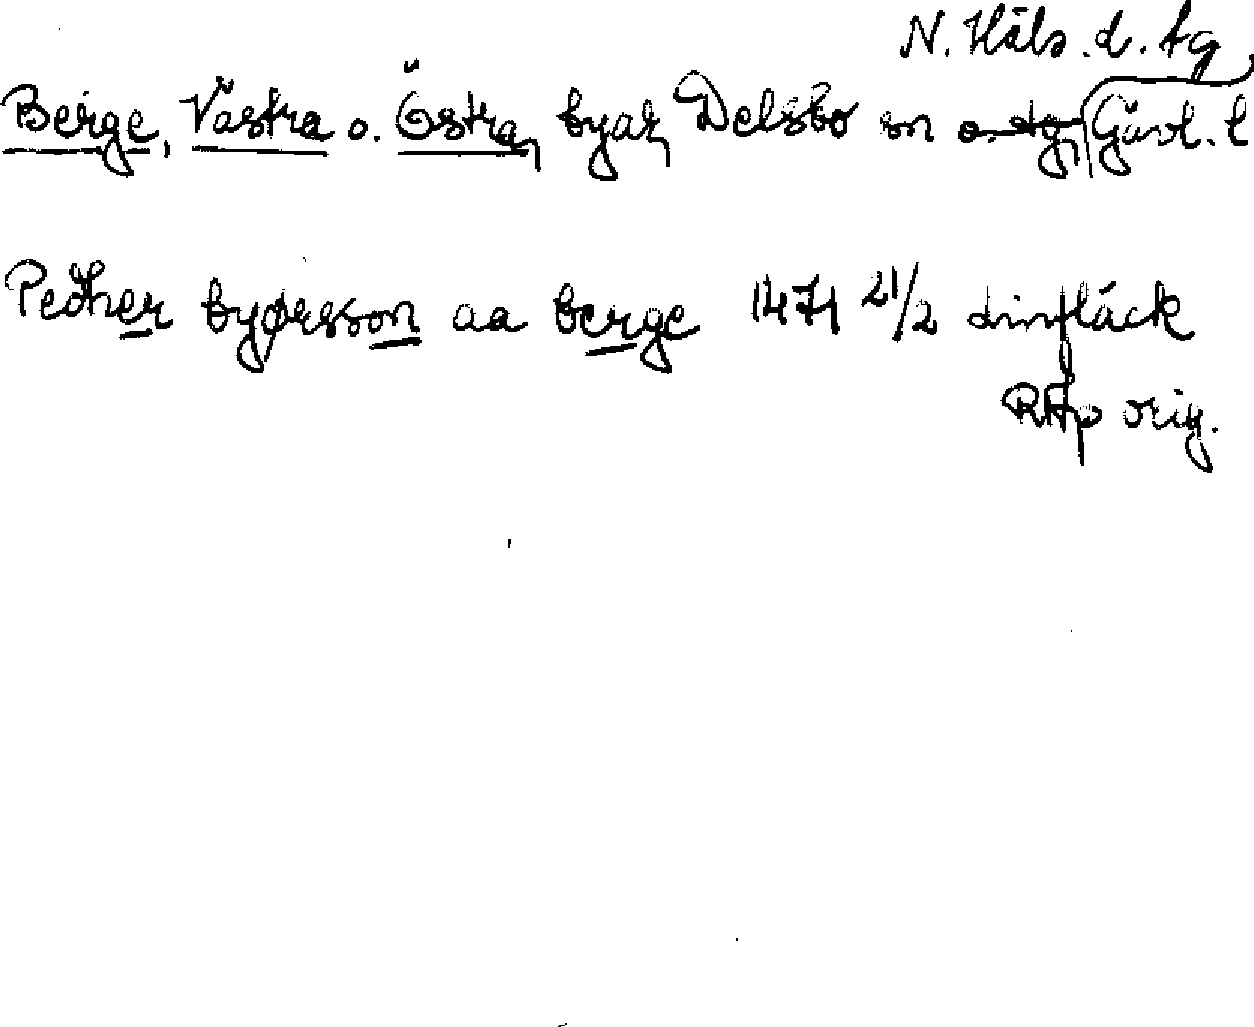 N. Häls. d. tg
Berge, Västra o. Östra, byar, Delsbo sn o. tg, Gävl. l
Pedher byørsson aa berge 1471 21/2 Limfläck
RAp orig.